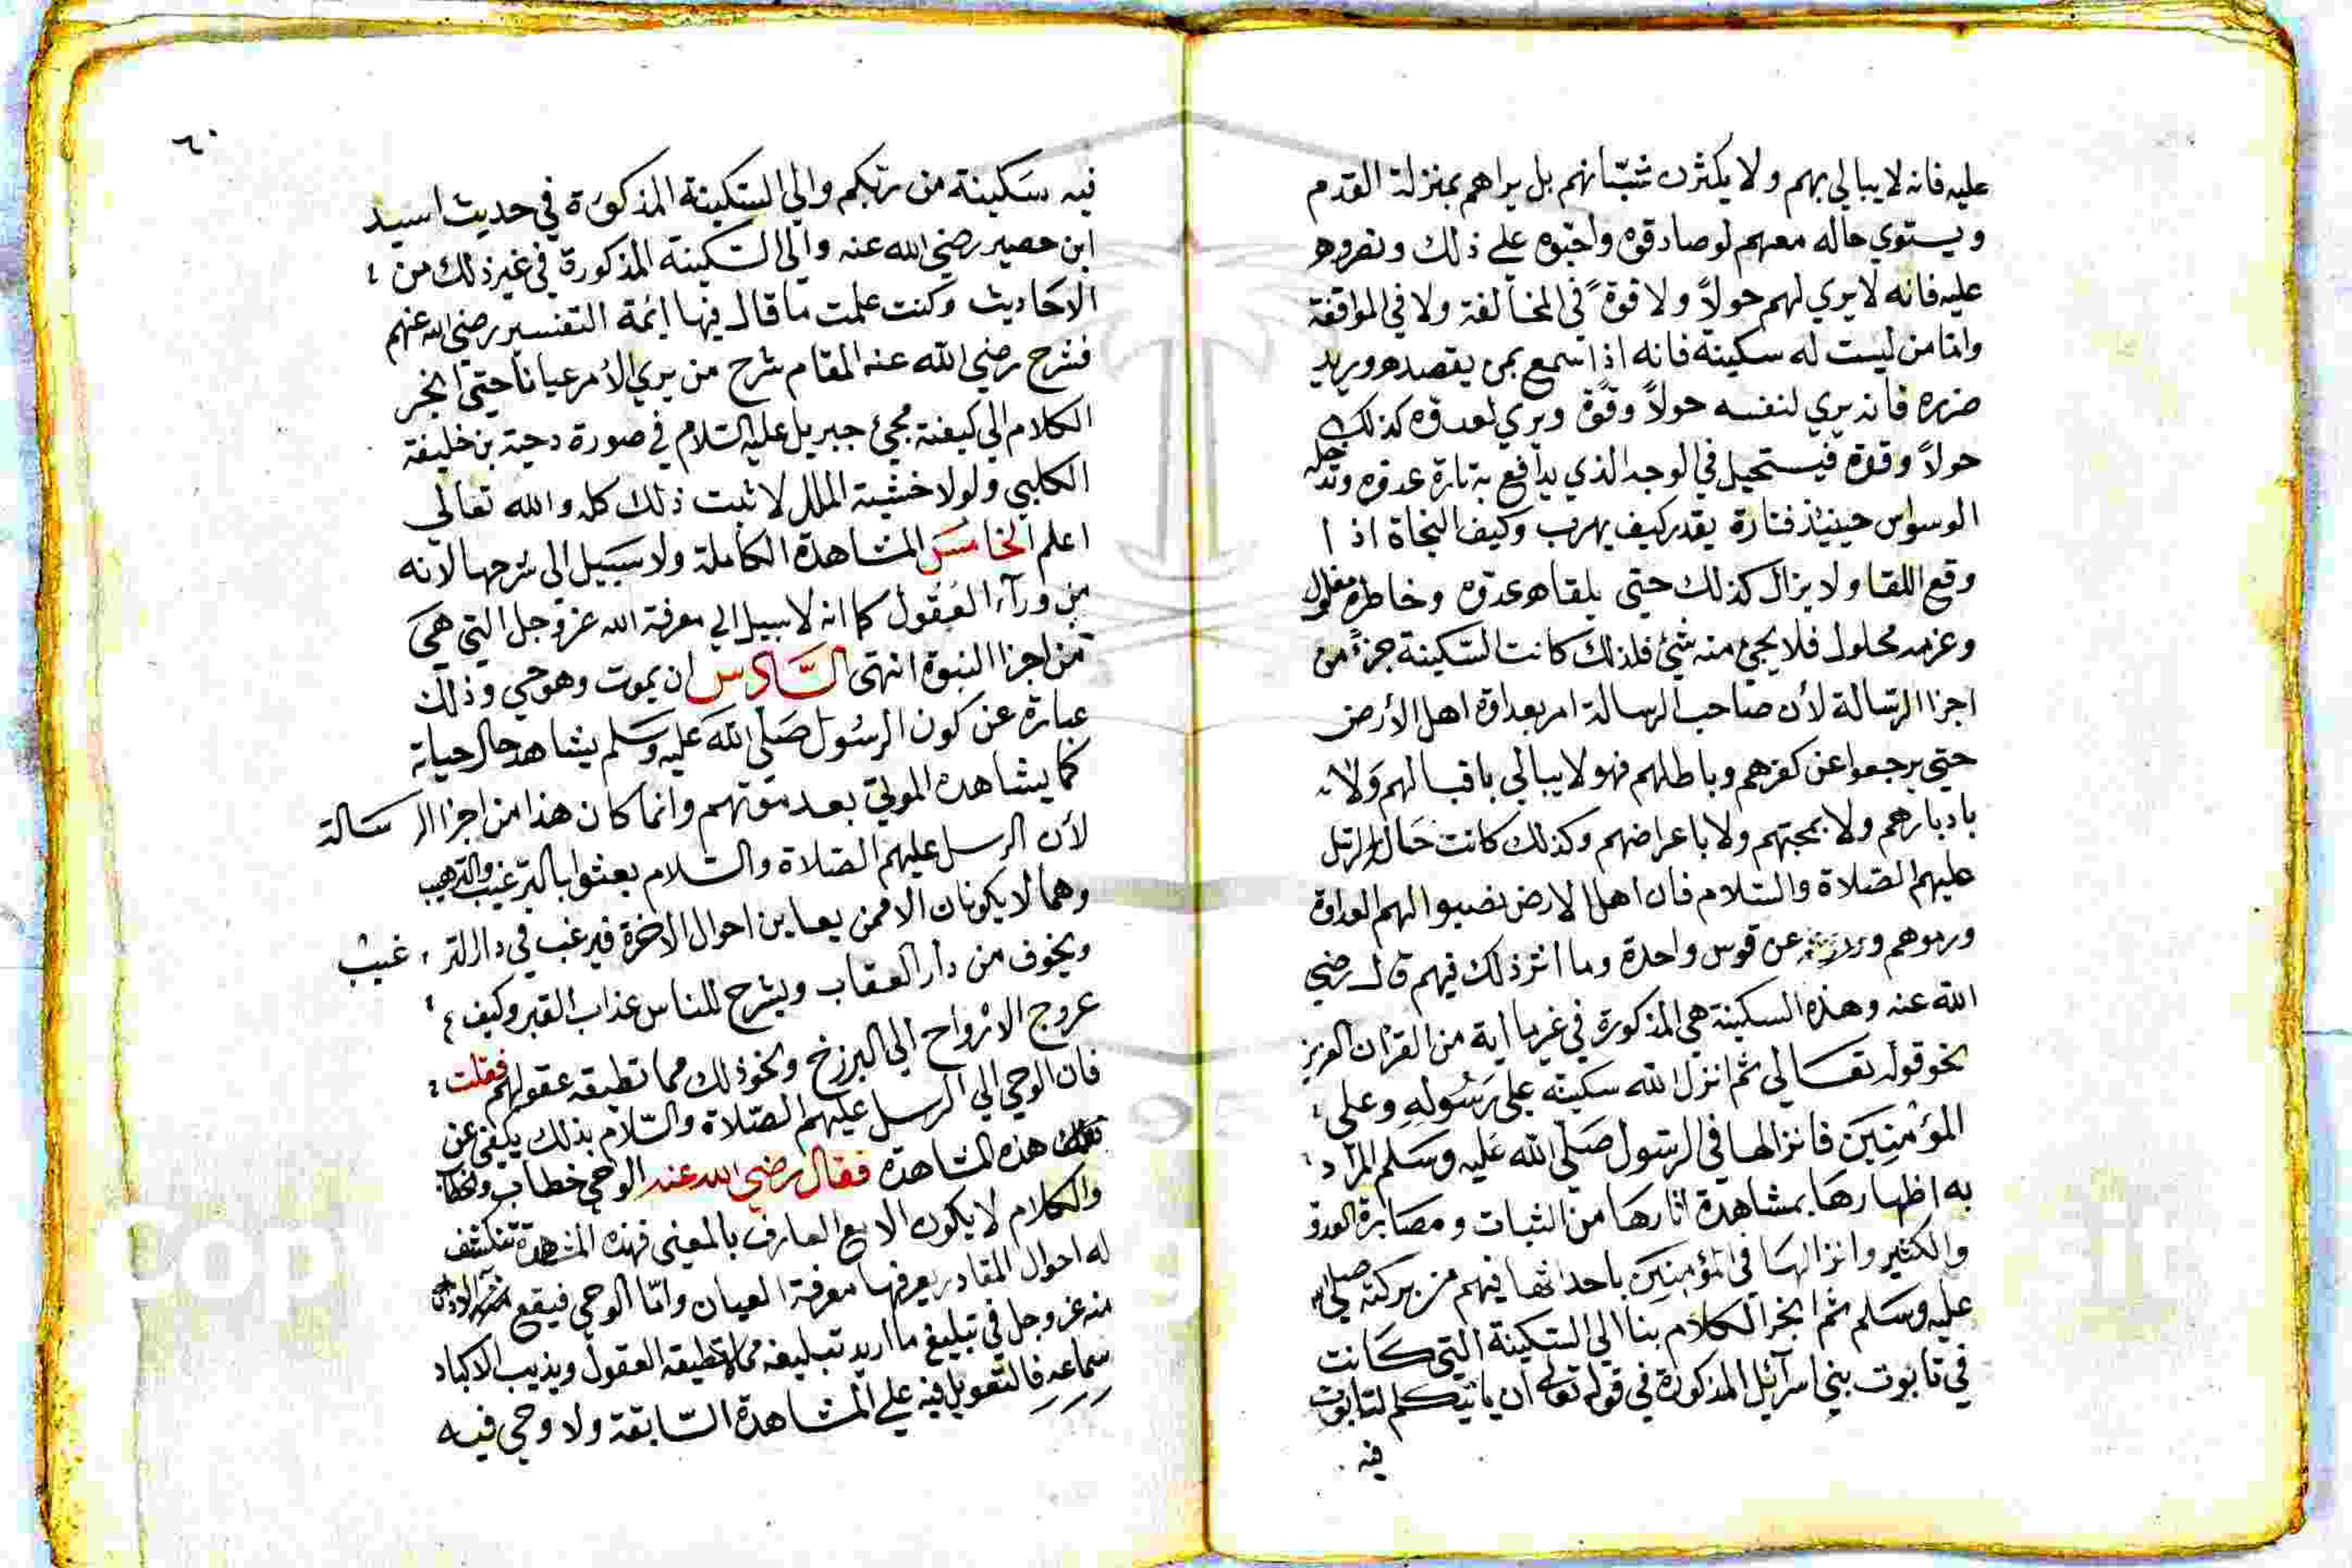 عليه فانه لا يبالي بهم ولا يكترث بشانهم بل يراهم بمنزلة العدم
ويستوي حاله معهم لو صادقوه واحبوه على ذلك ونصروه
عليه فانه لا يري لهم حولاً ولا قوة في المخالفة ولا في الموافقة
وامّا من ليست له سكينة فانه اذا سمع بمن يقصده ويريد
ضرره فانه يري لنفسه حولاً وقوة ويري لعدوه كذلك
حولاً وقوة فيستحيل في الوجه الذي يدافع به تارة عدوه وتدخله
الوسواس حينيذ فتارة يقدر كيف يهرب وكيف النجاة اذا
وقع اللقا ولا يزال كذلك حتي يلقاه عدوه وخاطره مفلول
وعزمه محلول فلا يجيئ منه شيئ فلذلك كانت السّكينة جزءً من
اجزا الرّسالة لأن صاحب الرسالة امر بعداوة اهل الأرض
حتي يرجعوا عن كفرهم وباطلهم فهو لا يبالي باقبالهم وَلا
بادبارهم ولا بمحبتهم ولا باعراضهم وكذلك كانت حَال الرسل
عليهم الصّلاة والسّلام فان اهل الارض نصبوا لهم العداوة
ورموهم عن قوس واحدة وما اثر ذلك فيهم قال رضي
الله عنه وهذه السكينة هي المذكورة في غير ما اية من القرٰان العزيز
نحو قوله تعَالي ثم انزل الله سكينته على رَسُولِهِ وعلى
المؤمِنِينَ فانزالها في الرسول صَلّى الله عَليه وسَلم المراد
به اظهارها بمشاهدة اثارهَا من الثبات ومصَابرة العدو
والكثير وانزالهَا في المؤمنِينَ باحداثها فيهم من بركته صلى الله
عليه وسَلم ثم انجر الكلام بنا الي السّكينة التي كَانت
في تابوت بني اسرآئيل المذكورة في قوله تعالى ان ياتيكم التابوت
فيه
٦٠
فيه سَكينة من ربّكم والي السّكينة المذكورة في حديث اسيد
ابن حصير رضي الله عنه والي السّكينة المذكورة في غير ذلك من
الاحَاديث وكنت علمت ما قال فيها ايمة التفسير رضي الله عنهم
فشرح رضي الله عنه المقام شرح من يري الأمر عياناً حتي انجر
الكلام الي كيفية مجيئ جبريل عليه السّلام في صورة دحية بن خليفة
الكلبي ولولا خشية الملل لاثبت ذلك كله والله تعالي
اعلم الخامسَ المشاهدة الكاملة ولا سَبيل الي شرحها لانه
من ورآء العُقول كما انه لا سبيل الي معرفة الله عز وجل التي هيَ
من اجزا النبوة انتهى السَّادس ان يموت وهو حي وذلك
عبارة عن كون الرسُول صَلّي الله عَليه وسَلم يشاهد حال حياته
كما يشاهده الموتي بعد موتهم وانما كان هذا من اجزا الرسَالة
لأن الرسل عليهم الصّلاة والسّلام بعثوا بالترغيب والترهيب
وهما لا يكونان الا ممن يعاين احوال الاخرة فيرغب في دار الترغيب
ويخوف من دار العقاب ويشرح للناس عذاب القبر وكيف
عروج الارواح الي البرزخ ونحو ذلك مما تطيقه عقولهم فقلت
فان الوحي الي الرسل عليهم الصّلاة والسّلام بذلك يكفي عن
هذه المشاهدة فقال رضي الله عنه الوحي خطاب والخطاب
والكلام لا يكون الا مع العارف بالمعني فهذه المشاهدة تنكشف
له احوال المقادر يعرفها معرفة العيان وامّا الوحي فيقع
منه عز وجل في تبليغ ما اريد تبليغه مما تطيقه العقول ويذيب الاكباد
سماعه فالتعويل فيه علي المشاهدة السّابقة ولا وحي فيه